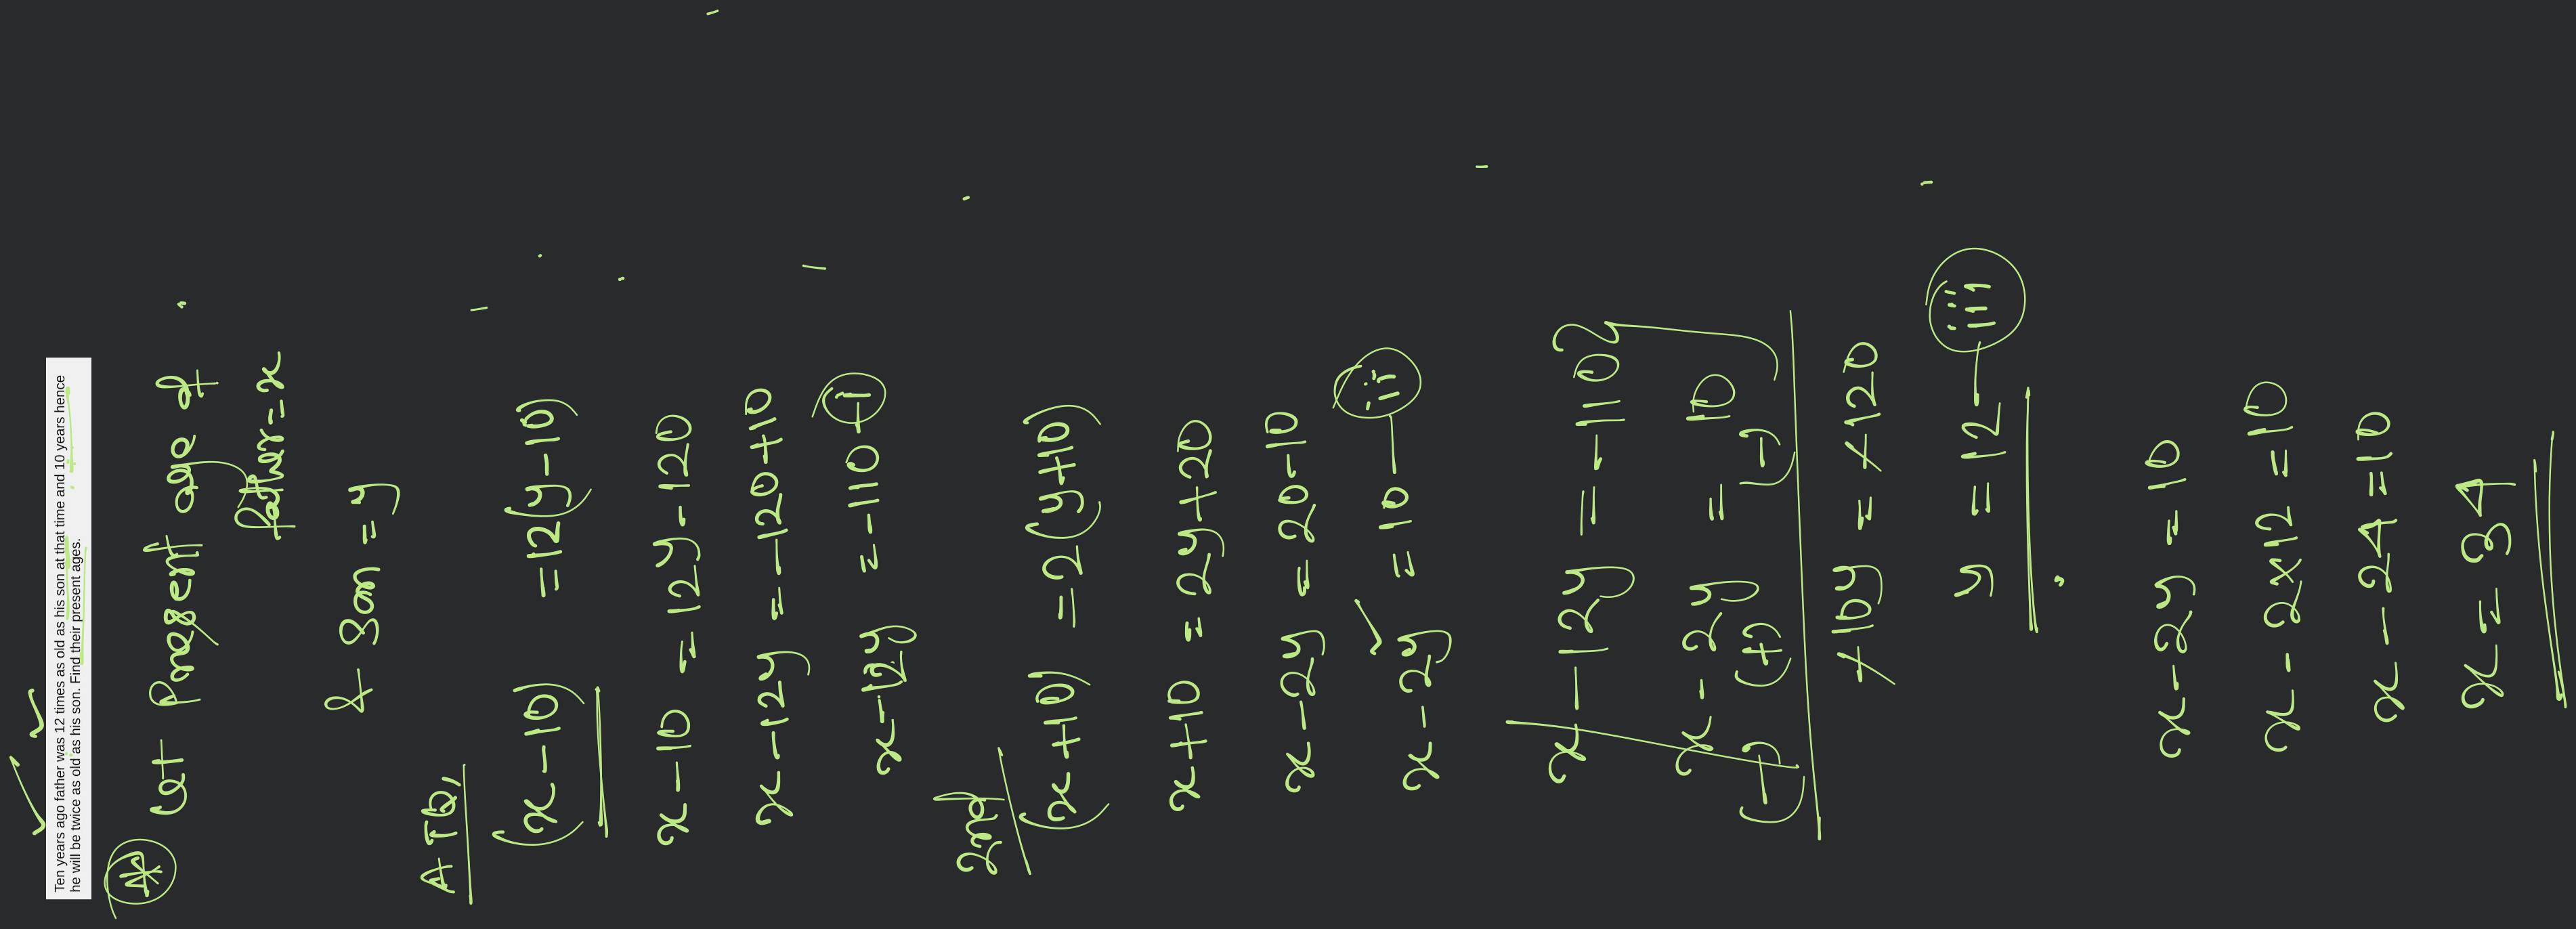 Ten years ago father was 12 times as old as his son at that time and 10 years hence
he will be twice as old as his son. Find their present ages.
Let Present age of
father = x
& Son = y
ATQ,
(x-10) = 12(y-10)
x-10 = 12y-120
x-12y = -120+10
x-12y = -110 - (i)
2nd
(x+10) = 2(y+10)
x+10 = 2y+20
x-2y = 20-10
x-2y = 10 - (ii)
x-12y = -110
x-2y = 10
(-) (+) (-)
+10y = +120
y = 12 - (iii)
x-2y = 10
x-2×12 = 10
x-24 = 10
x = 34